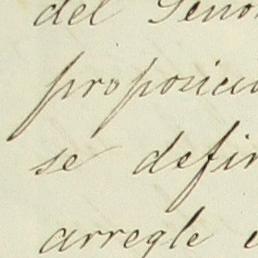 del Seño
proposici
se defin
arregle e